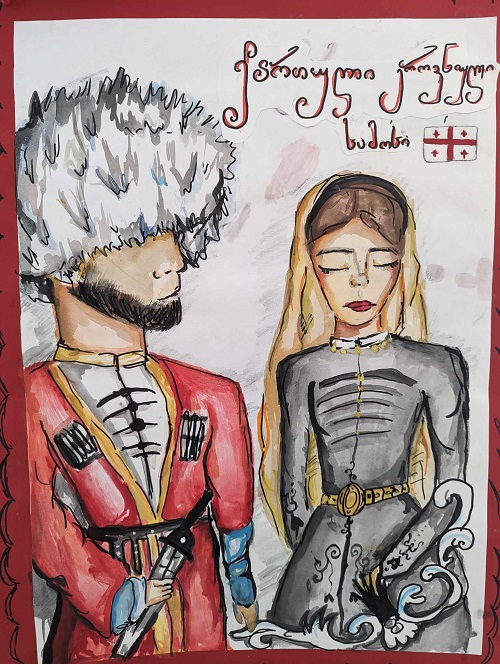 ქართული ეროვნული
სამოსი